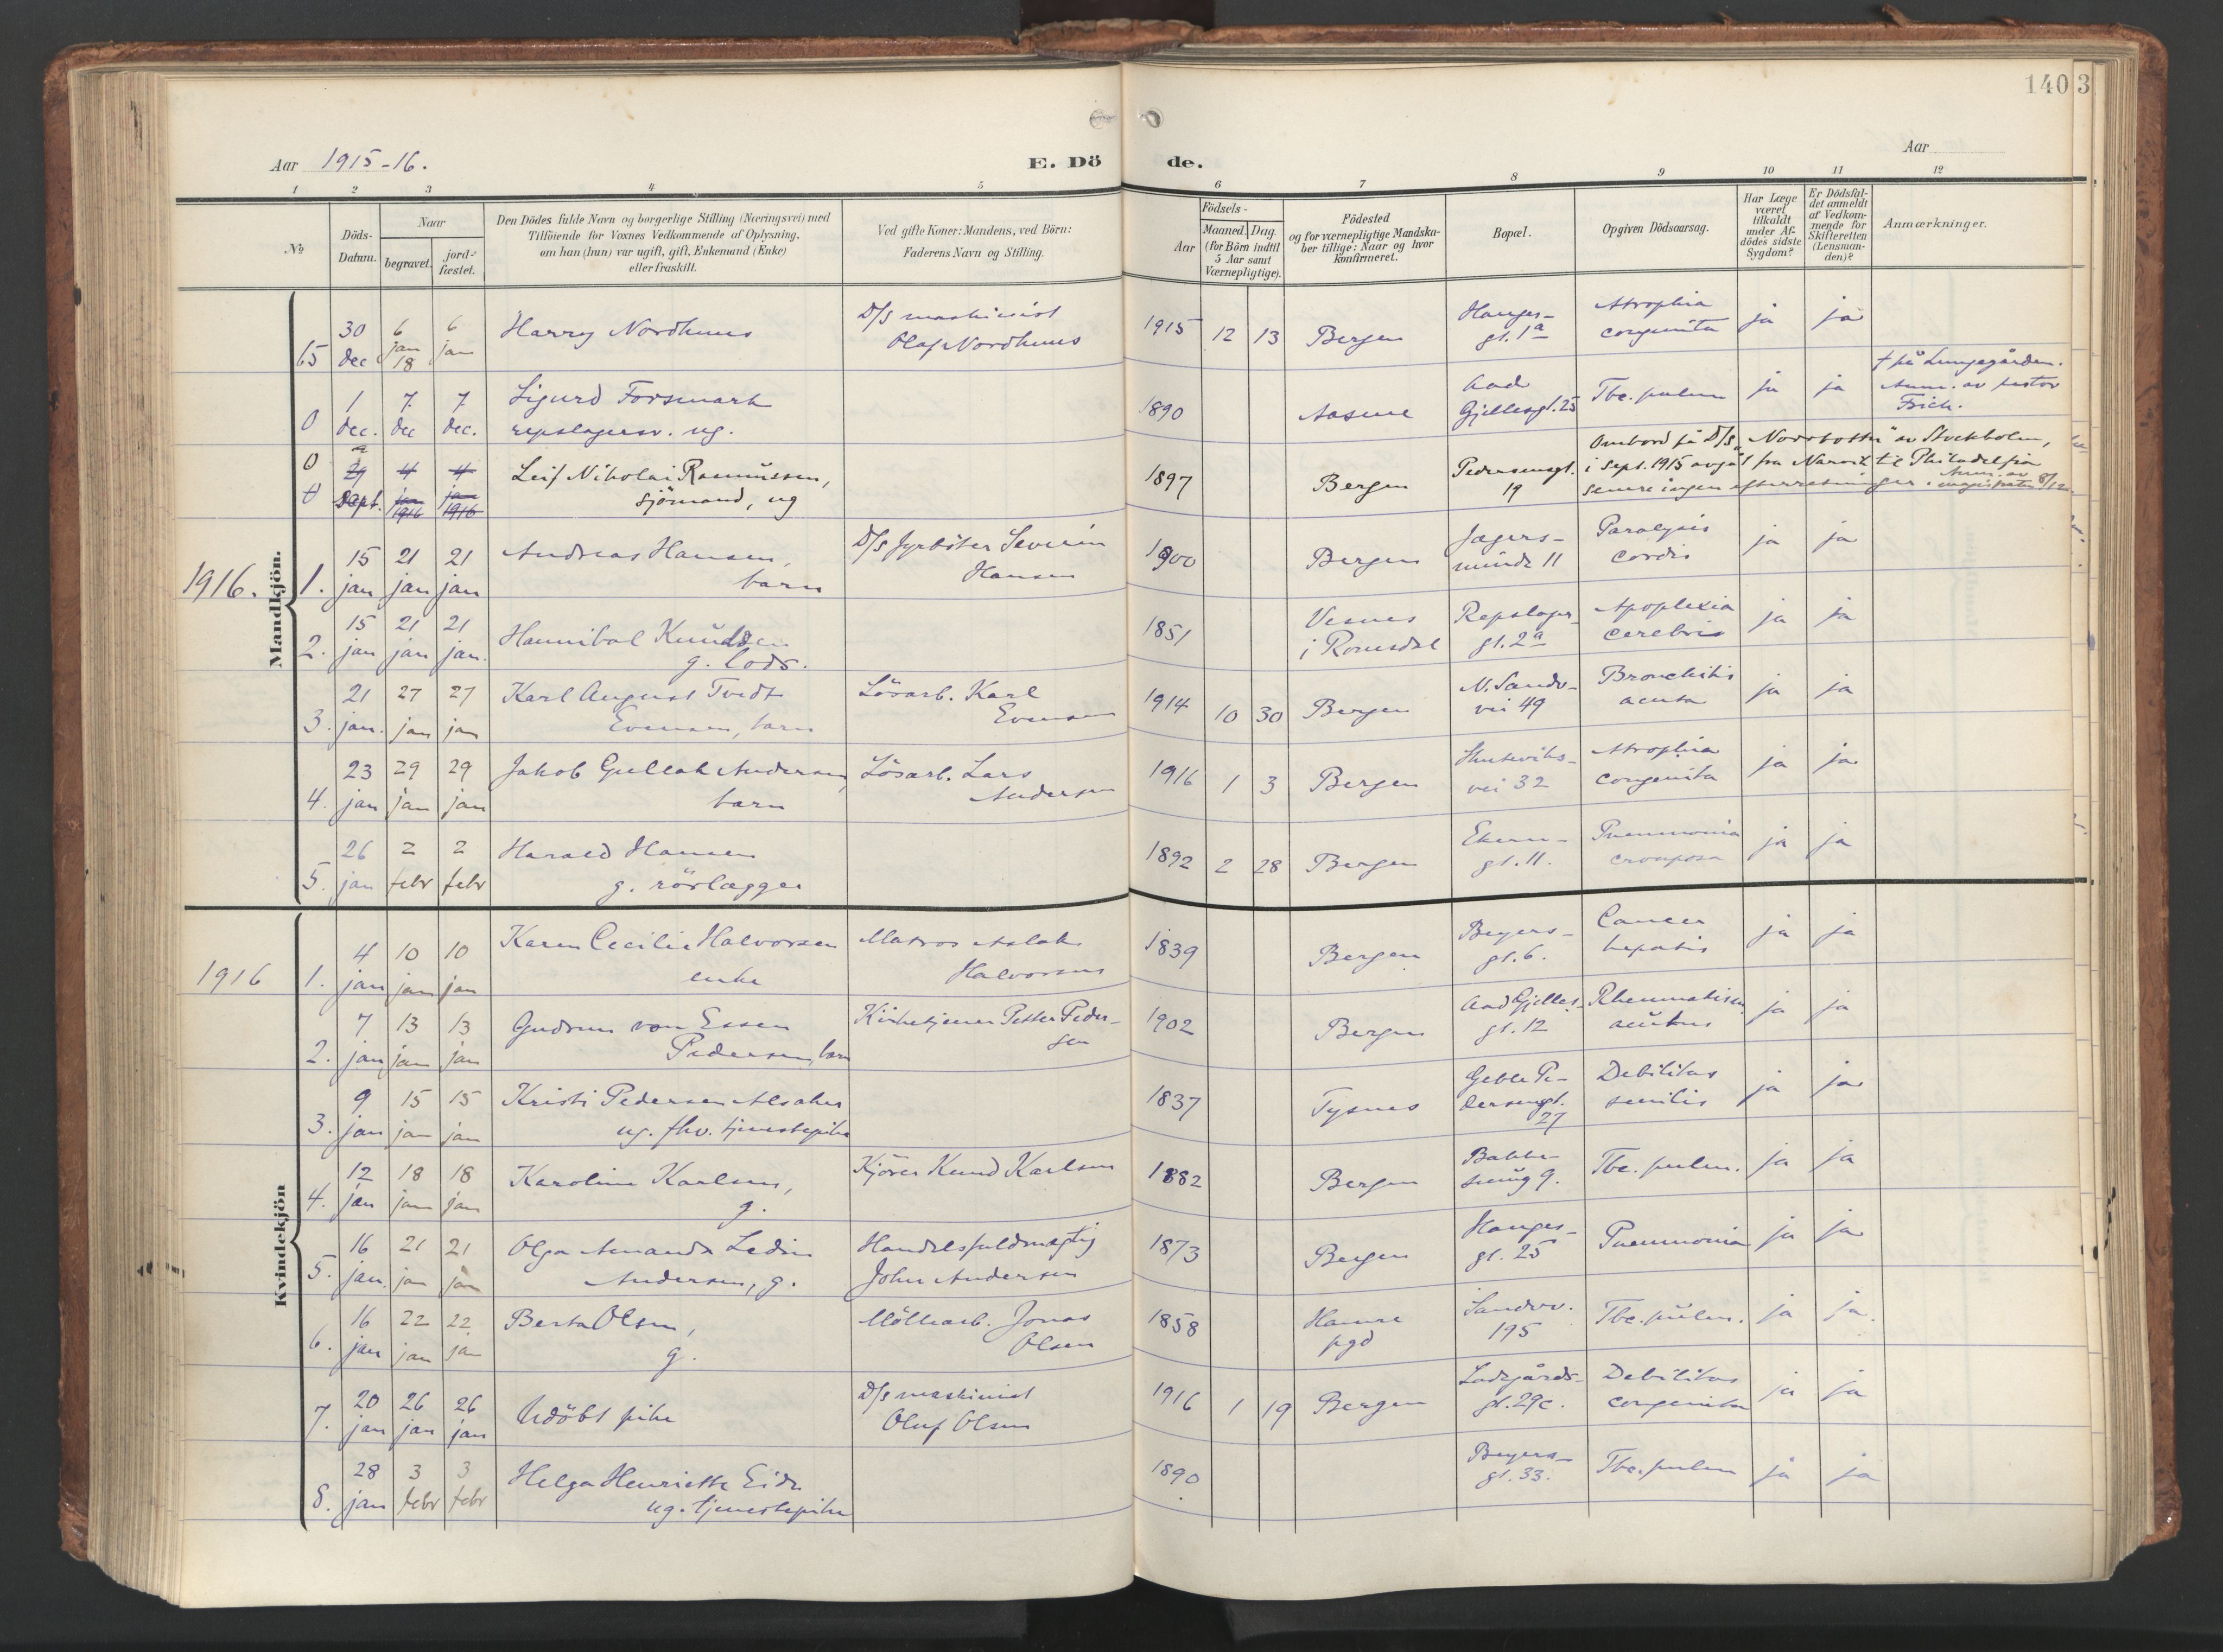 140 3
Aar 1915-16.
E. Dö de.
Aar
1 2 3 4 5 6 7 8 9 10 11 12
№
Döds-
Datum.
Naar
begravet.
jord-
fæstet.
Den Dödes fulde Navn og borgerlige Stilling (Næringsvei) med
Tilföiende for Voxnes Vedkommende af Oplysning,
om han (hun) var ugift, gift, Enkemand (Enke)
eller fraskilt.
Ved gifte Koner: Mandens, ved Börn:
Faderens Navn og Stilling.
Födsels-
Aar
Maaned. Dag.
(for Börn indtil
5 Aar samt
Værnepligtige).
Födested
og for værnepligtige Mandska-
ber tillige: Naar og hvor
konfirmeret.
Bopæl.
Opgiven Dödsaarsag.
Har Læge
været
tilkaldt
under Af-
dödes sidste
Sygdom?
Er Dödsfal-
det anmeldt
af Vedkom-
mende for
Skifteretten
(Lensman-
den)?
Anmærkninger.
Mandkjön.
65 30 dec 6 jan 18 6 jan Harry Nordhuus D/s maskinist Olaf Nordhuus 1915 12 13 Bergen Hauges-gt. 1a Atrophia congenita ja ja
0 1 dec. 7 dec 7 dec. Sigurd Forsmark repslagersv. ug. 1890 Aasane Aad Gjellesgt. 25 Tbc. pulm ja ja † på Lungegården. Anm. av pastor Frich.
0 29 Sept. 4 jan 1916 4 jan 1916 Leif Nikolai Rasmussen, sjömand, ug 1897 Bergen Pedersensgt. 19 Ombord på D/s "Norrbotten" av Stockholm, i Sept. 1915 avgåt fra Narvik til Philadelfia senere ingen efterretninger. Anm. av magistraten
1916. 1. 15 jan 21 jan 21 jan Andreas Hansen, barn D/s fyrböter Severin Hansen 1900 Bergen Jægers-minde 11 Paralysis cordis ja ja
2. 15 jan 21 jan 21 jan. Hannibal Knudsen g. lods. 1851 Vesnes i Romsdal Repslager gt. 2a Apoplexia cerebris ja ja
3. 21 jan. 27 jan 27 jan Karl August Tvedt Evensen, barn Lösarb. Karl Evensen 1914 10 30 Bergen N. Sandv-vei 49 Bronchitis acuta ja ja
4. 23 jan 29 jan 29 jan Jakob Gullak Andersen, barn Lösarb. Lars Andersen 1916 1 3 Bergen Skuteviks-vei 32 Atrophia congenita ja ja
5. 26 jan 2 febr 2 febr Harald Hansen g. rörlægger 1892 2 28 Bergen Ekern-gt. 11. Pneumonia crouposa ja ja
Kvindekjön
1916 1. 4 jan 10 jan 10 jan Karen Cecilie Halvorsen enke Matros Aslak Halvorsen 1839 Bergen Beyers-gt. 6. Cancer hepatis ja ja
2. 7 jan 13 jan 13 jan Gudrun von Essen Pedersen, barn Kirketjener Petter Peder-sen 1902 Bergen Aad Gjelles-gt. 12 Rheumatism. acutus ja ja
3. 9 jan 15 jan 15 jan Kristi Pedersen ug. fhv. tjenestepike 1837 Tysnes Geble Pe-dersensgt. 27 Debilitas senilis ja ja
4. 12 jan 18 jan 18 jan Karoline Karlsen, g. Kjörer Knud Karlsen 1882 Bergen Bakke-smug 9. Tbc. pulm. ja ja
5. 16 jan. 21 jan 21 jan Olga Amanda Ledin Andersen, g. Handelsfuldmægtig John Andersen 1873 Bergen Hauges-gt. 25 Pneumonia ja ja
6. 16 jan 22 jan 22 jan Berta Olsen, g. Möllearb. Jonas Olsen 1858 Hamre pgd Sandvv. 195 Tbc. pulm. ja ja.
7. 20 jan 26 jan 26 jan Udöbt pike D/s maskinist Oluf Olsen 1916 1 19 Bergen Ladegårds-gt. 29c. Debilitas congenita ja ja
8. 28 jan 3 febr 3 febr Helga Henriette Eide ug. tjenestepike 1890 Beyers-gt. 33. Tbc. pulm ja ja